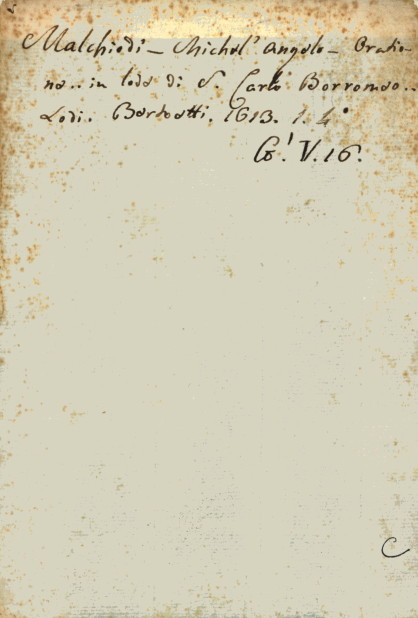 Malchiodi - Michel' Angelo - Oratio-
ne.. in lode di S. Carlo Borromeo..
Lodi. Bertoetti. 1613. 1. 4°
G! V. 16.
C